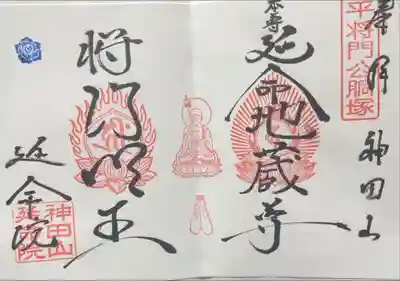 奉拝
神田山
平将門公胴塚
本尊
延命地蔵尊
将門明王
延命院
神田山
延命院